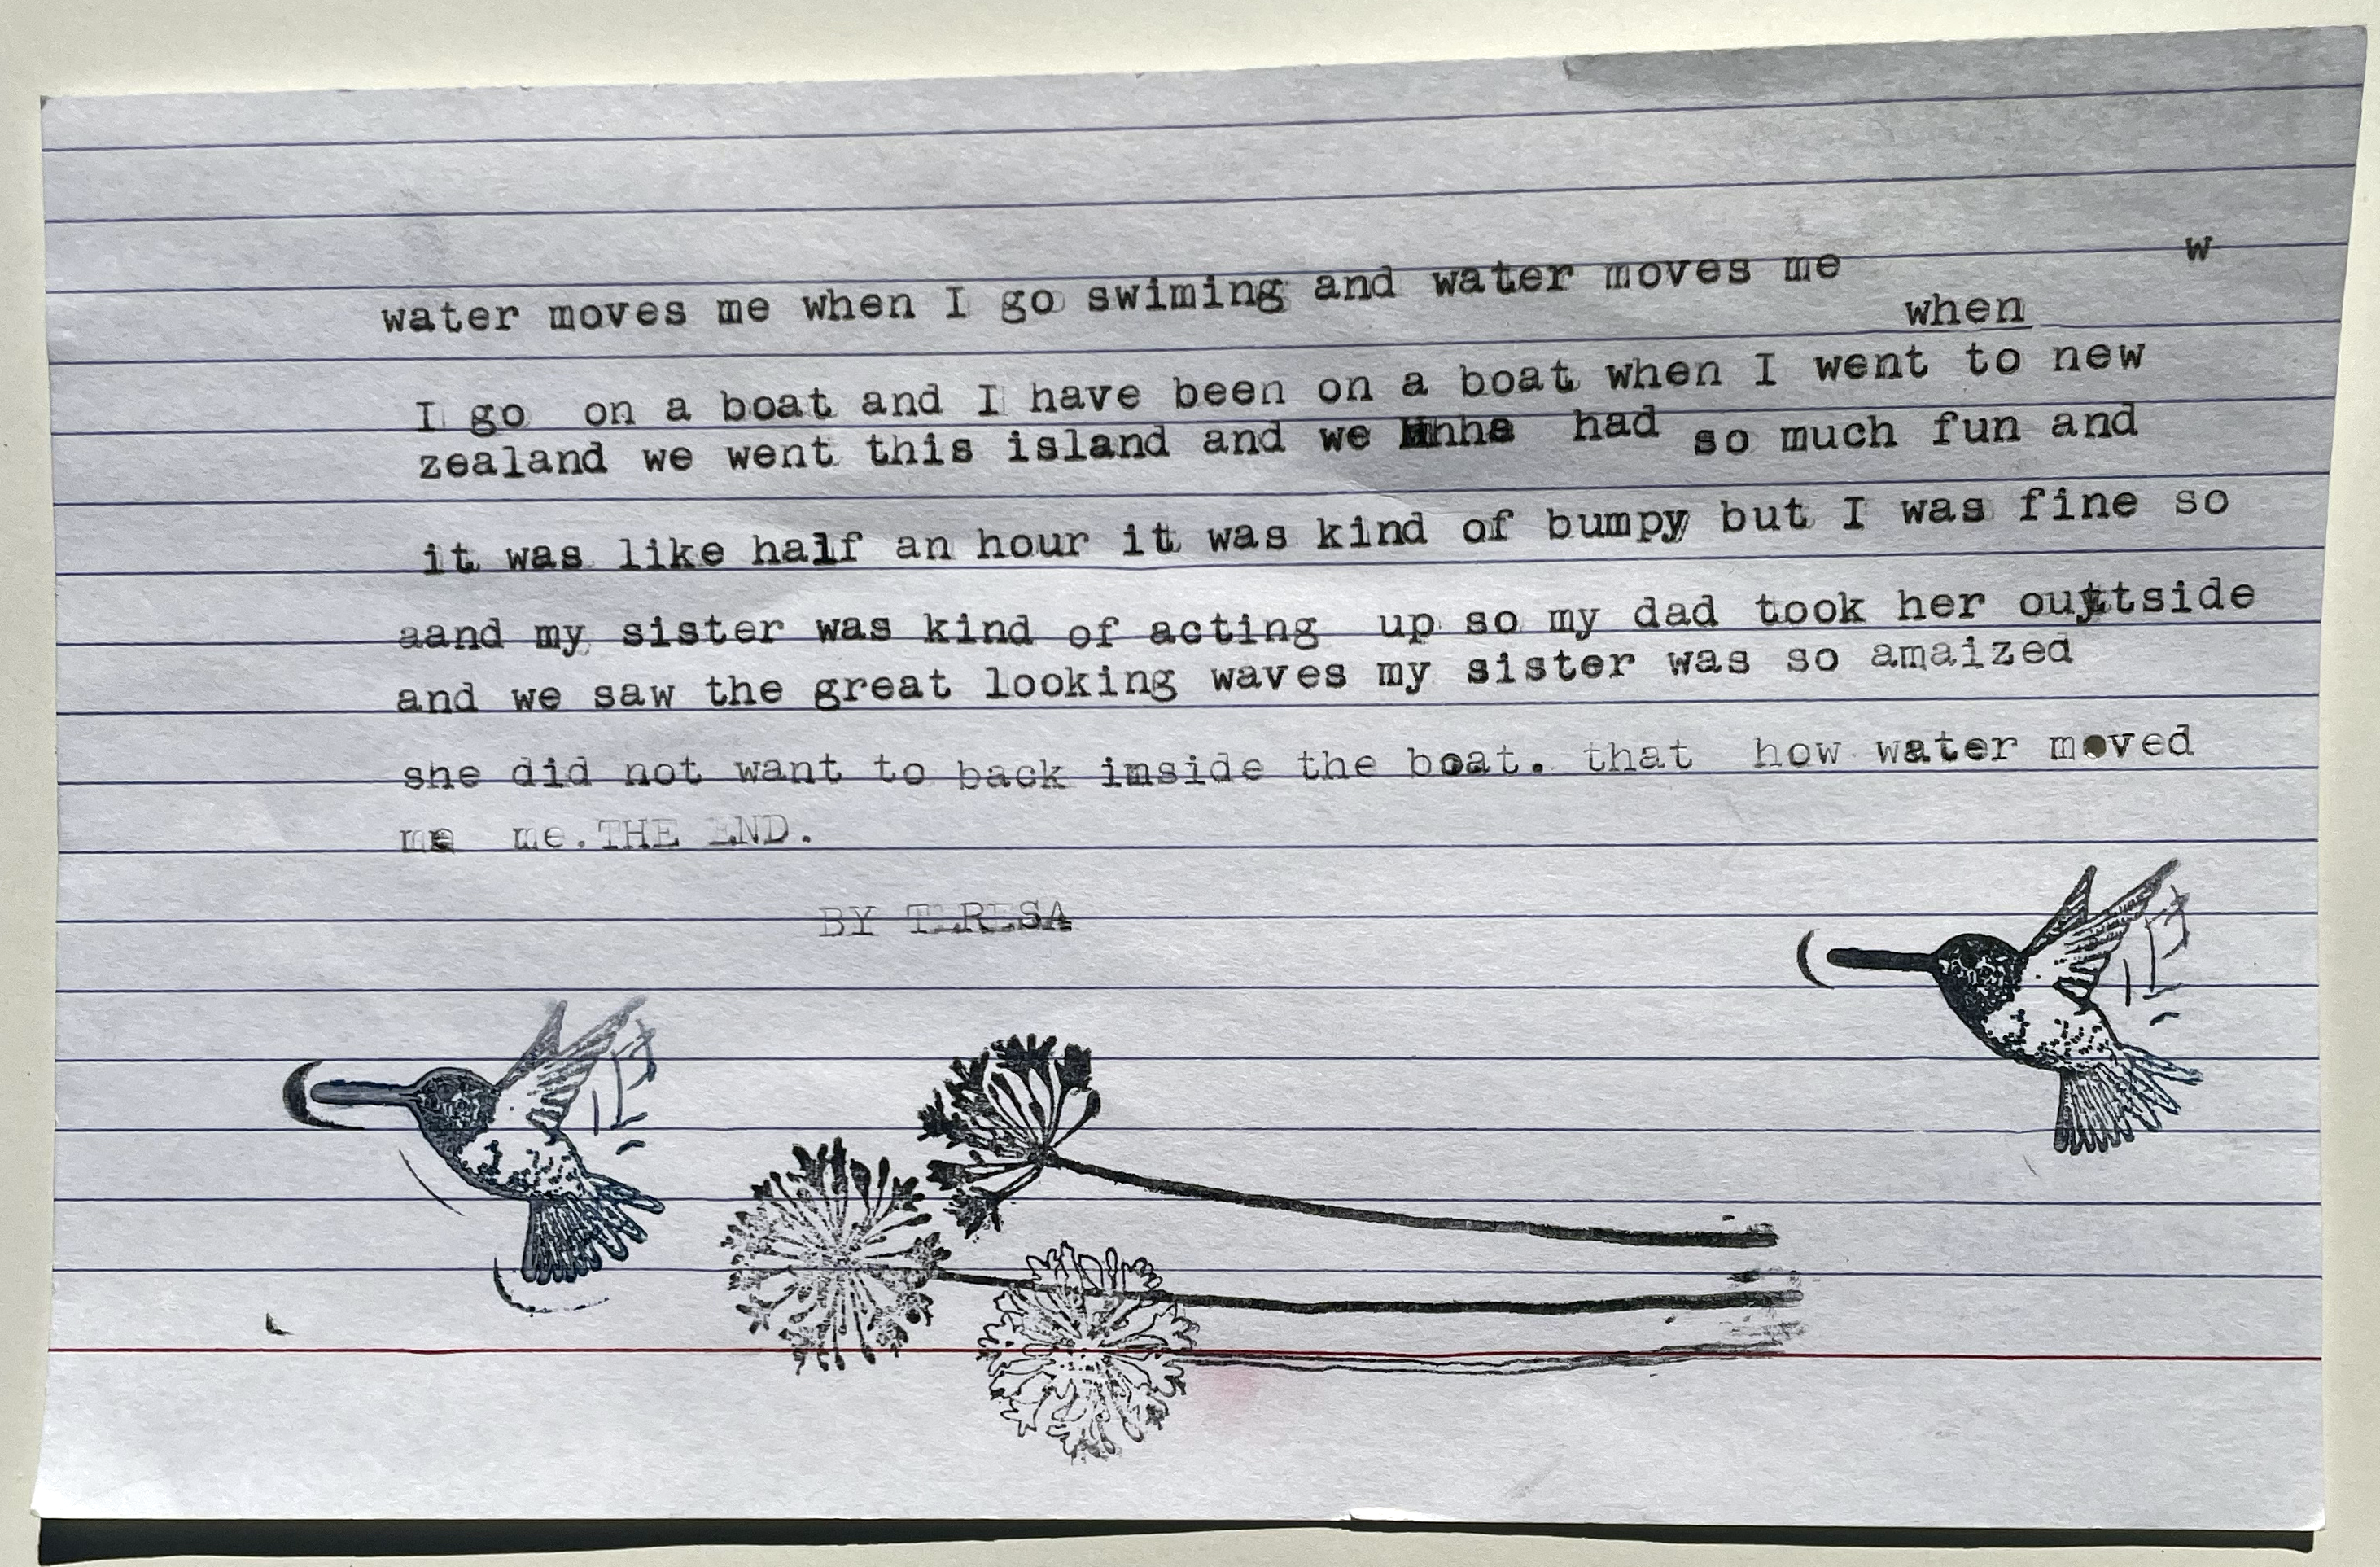 w
water moves me when I go swiming and water moves me
when
I go on a boat and I have been on a boat when I went to new
zealand we went this island and we had so much fun and
it was like half an hour it was kind of bumpy but I was fine so
aand my sister was kind of acting up so my dad took her outside
and we saw the great looking waves my sister was so amaized
she did not want to back imside the boat. that how water moved
me me.THE END.
BY TERESA